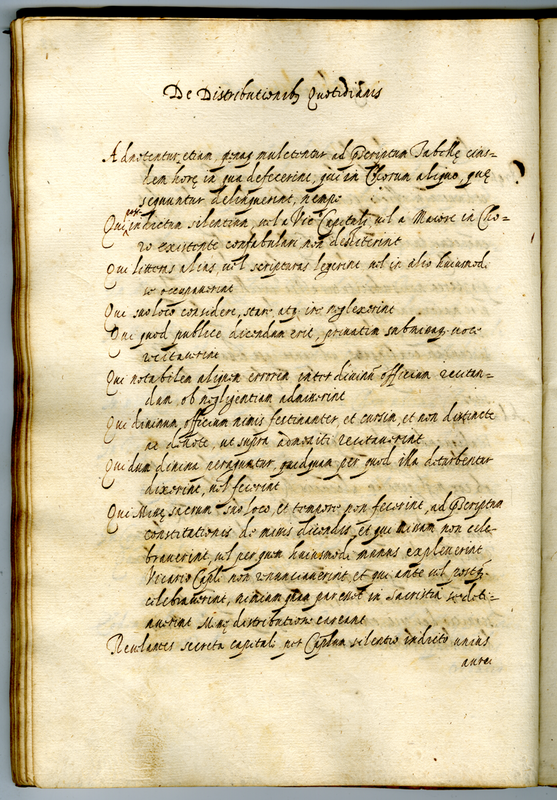 De Distributionib; Quotidianis
Adnotentur, etiam, pœnaq; mulctentur ad Pscriptum Tabellę eius-
dem horę in qua defecerint, qui in Chorum aliquo, quę
sequuntur delinquerint, nempe
Qui post indictum silentium, vel a Vic.º Capitali, vel a Maiore in Cho-
ro existente confabulari non desisterint
Qui litteras alias, vel scripturas legerint vel in alio huiusmodi
se occupauerint
Qui suo loco considere, stare, atq; ire neglexerint
Qui quod publice dicendum erit, priuatim submissaq; voce
recitauerint
Qui notabilem aliquem errorem inter diuinũ officium recitan-
dum ob negligentiam admiserint
Qui diuinum officium nimis festinanter, et cursim, et non distincte
ac deuote, ut supra admoniti recitauerint
Qui dum diuina peraguntur, quidquam per quod illa deturbentur
dixerint, vel fecerint
Qui Missę sacrum suo loco, et tempore non fecerint, ad Pscriptum
constitutionis de missis dicendis, et qui missam non cele-
brauerint, vel per quem huiusmodi munus expleuerint
Vicario Capli non renunciauerint, et qui ante vel postq̃
celebrauerint, missam quam par est in Sacristia se deti-
nuerint Missę distributione careant
Reuelantes secreta capituli per Caplum silentio indicto unius
aurei